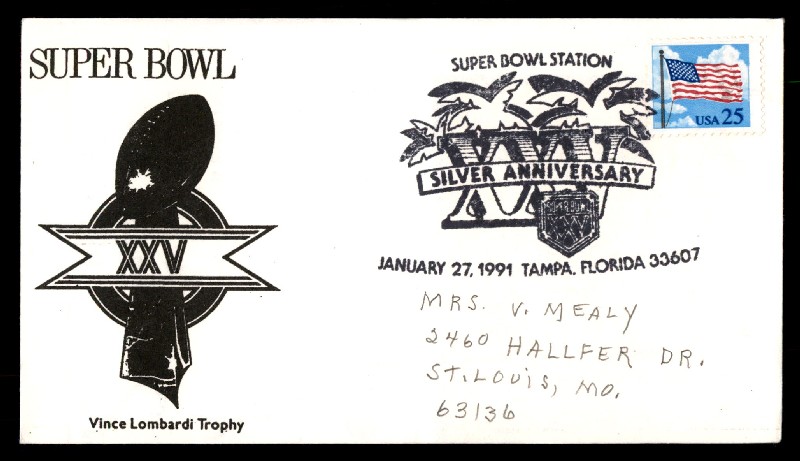 SUPER BOWL
XXV
Vince Lombardi Trophy
SUPER BOWL STATION
XXV
SILVER ANNIVERSARY
SUPER BOWL
XXV
JANUARY 27, 1991 TAMPA, FLORIDA 33607
USA 25
MRS. V. MEALY
2460 HALLFER DR.
ST. LOUIS, MO.
63136